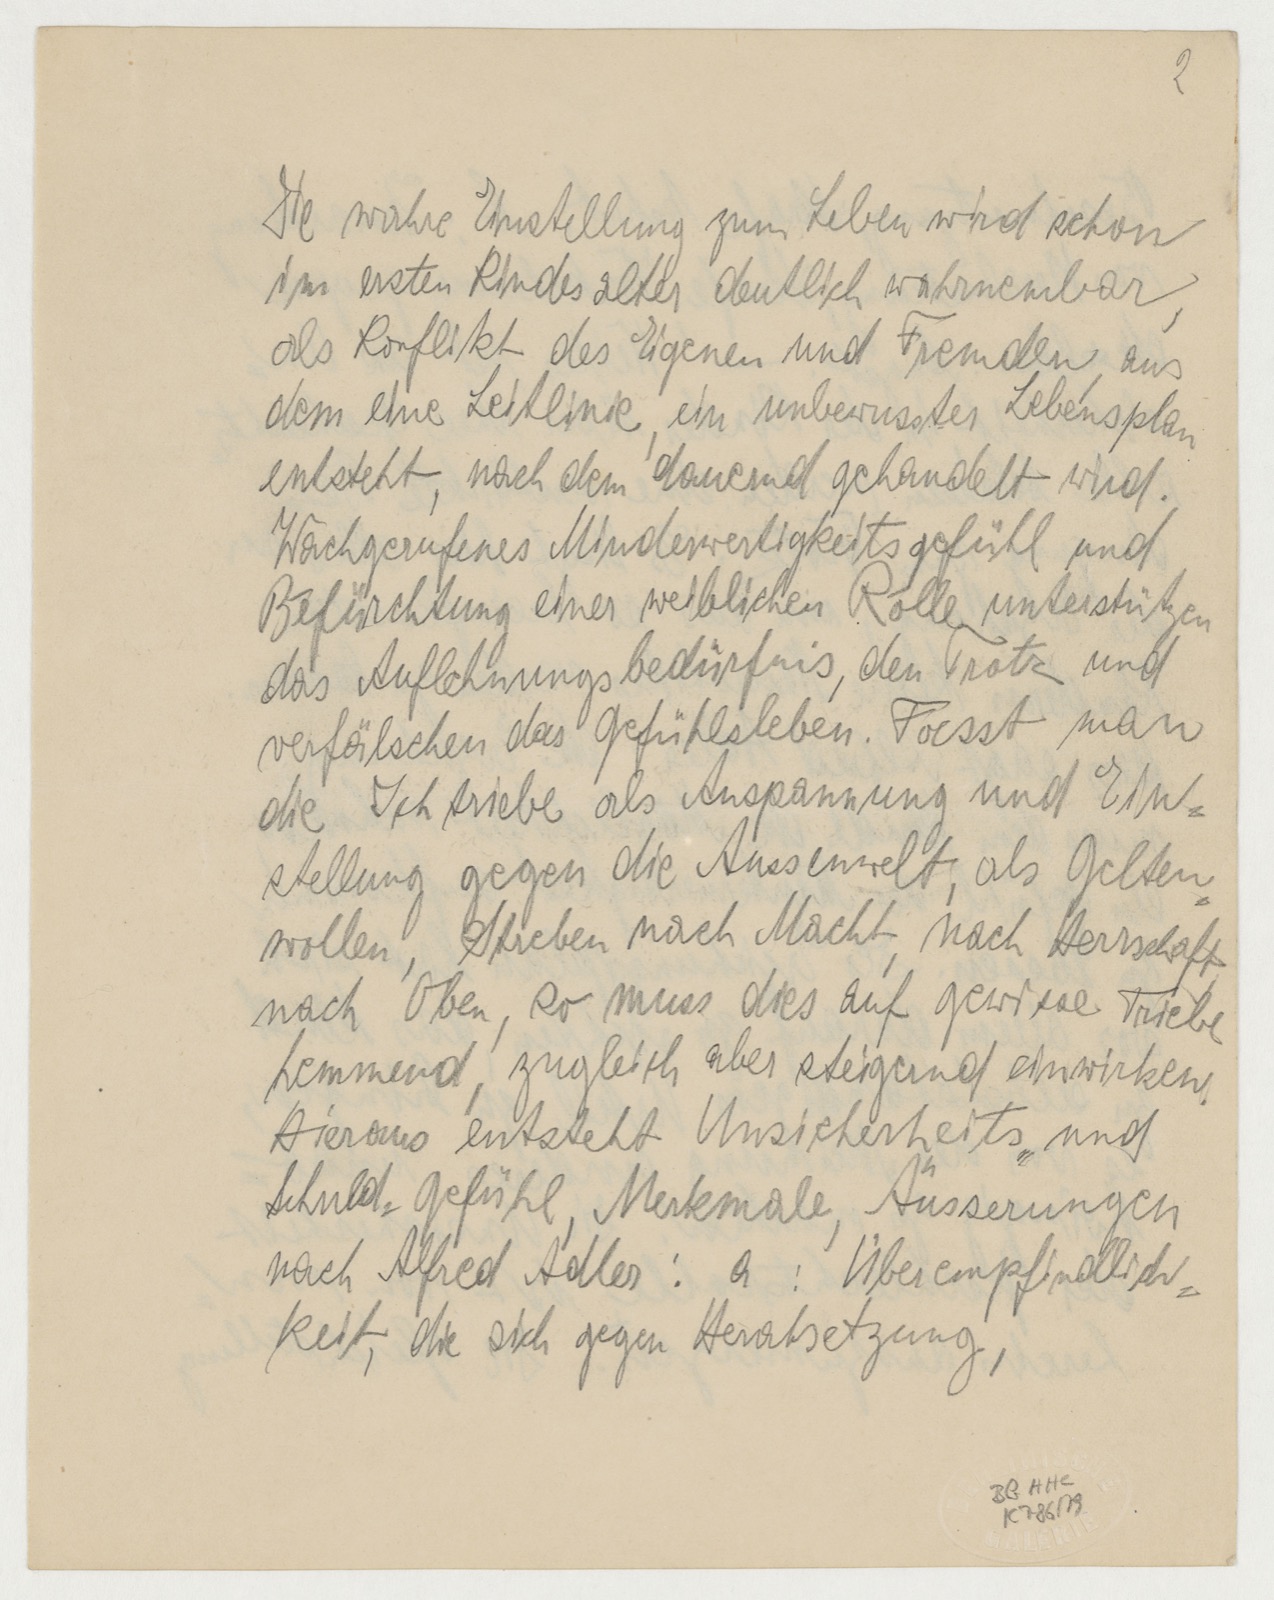 2
Die wahre Einstellung zum Leben wird schon
im ersten Kindesalter deutlich wahrnembar,
als Konflikt des Eigenen und Fremden, aus
dem eine Leitlinie, ein unbewusster Lebensplan
entsteht, nach dem dauernd gehandelt wird.
Wachgerufenes Minderwertigkeitsgefühl und
Befürchtung einer weiblichen Rolle unterstützen
das Auflehnungsbedürfnis, den Trotz und
verfälschen das Gefühlsleben. Fasst man
die Ichtriebe als Anspannung und Ein=
stellung gegen die Aussenwelt, als Gelten=
wollen, Streben nach Macht, nach Herrschaft,
nach Oben, so muss dies auf gewisse Triebe
hemmend, zugleich aber steigernd einwirken.
Hieraus entsteht Unsicherheits= und
Schuld=Gefühl, Merkmale, Äusserungen
nach Alfred Adler: a: Überempfindlich=
keit, die sich gegen Herabsetzung,
BG HHC
K 786/79